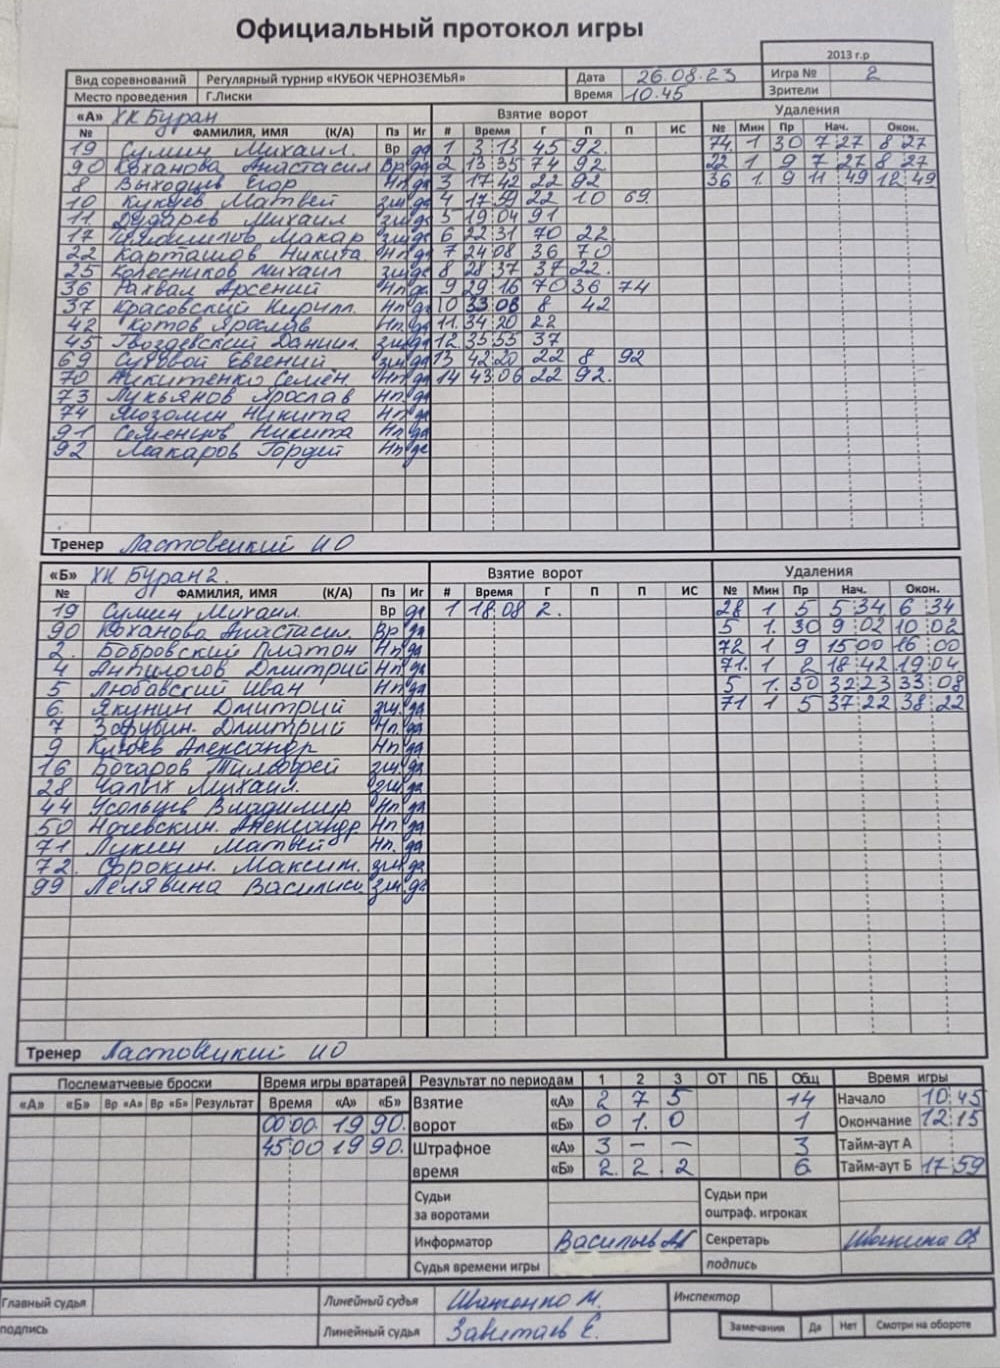 Официальный протокол игры
2013 г.р
Вид соревнований Регулярный турнир «КУБОК ЧЕРНОЗЕМЬЯ» Дата 26.08.23 Игра № 2
Место проведения Г.Лиски Время 10.45 Зрители
«А» ХК Буран Взятие ворот Удаления
№ ФАМИЛИЯ, ИМЯ (К/А) Пз Иг # Время Г П П ИС № Мин Пр Нач. Окон.
19 Сумин Михаил. Вр да 1 3 13 45 92. 74. 1 30 7 27 8 27
90 Коханова Анастасия Вр да 2 13 35 74 92 22 1 9 7 27 8 27
8 Выходцев Егор Нп да 3 17 42 22 92 36 1. 9 11 49 12 49
10 Кукуев Матвей зщ да 4 17 59 22 10 69.
11. Дударев Михаил зщ да 5 19 04 91
17 Макар зщ да 6 22 31 70 22.
22 Карташов Никита Нп да 7 24 08 36 70
25 Колесников Михаил зщ да 8 28 37 37 22.
36 Рахвал Арсений Нп да 9 29 16 70 36 74
37 Красовский Кирилл. Нп да 10 33 06 8 42
42 Котов Ярослав Нп. да 11. 34 20 22
45 Гвоздевский Даниил. зщ да 12 35 55 37
69 Судовой Евгений зщ да 13 42 20 22 8 92
70 Никитенко Семён. Нп да 14 43 06 22 92.
73 Лукьянов Ярослав Нп да
74 Мозолин Никита Нп да
91 Семенцов Никита Нп да
92 Макаров Гордей Нп да
Тренер Ластовецкий И О
«Б» ХК Буран 2. Взятие ворот Удаления
№ ФАМИЛИЯ, ИМЯ (К/А) Пз Иг # Время Г П П ИС № Мин Пр Нач. Окон.
19 Сумин Михаил Вр да 1 18 08 2. 28 1 5 5 34 6 34
90 Коханова Анастасия. Вр да 5 1. 30 9 02 10 02
2. Бобровский Платон Нп да 72 1 9 15 00 16 00
4 Антилогов Дмитрий Нп да 71. 1 2 18 42 19 04
5 Любавский Иван Нп да 5 1. 30 32 23 33 08
6 Якунин Дмитрий зщ. да 71 1 5 37 22 38 22
7 Зарубин. Дмитрий Нп. да
9 Клюев Александр Нп. да
16 Бочаров Тимофей зщ. да
28 Чалых Михаил. зщ да
44 Усольцев Владимир Нп да
50 Александр Нп да
71 Лукин Матвей Нп. да
72. Фрокин. Максим. зщ. да
99 Лелявина Василиса зщ. да
Тренер Ластовецкий И О
Послематчевые броски Время игры вратарей Результат по периодам 1 2 3 ОТ ПБ Общ Время игры
«А» «Б» Вр «А» Вр «Б» Результат Время «А» «Б» Взятие «А» 2 7 5 14 Начало 10:45
00 00. 19 90. ворот «Б» 0 1. 0 1 Окончание 12:15
45 00 19 90. Штрафное «А» 3 – – 3 Тайм-аут А
время «Б» 2. 2. 2 6 Тайм-аут Б 17:59
Судьи за воротами Судьи при оштраф. игроках
Информатор Васильев Секретарь
Судья времени игры подпись
Главный судья Линейный судья Шанченко М. Инспектор
подпись Линейный судья Завитаев Е. Замечания Да Нет Смотри на обороте